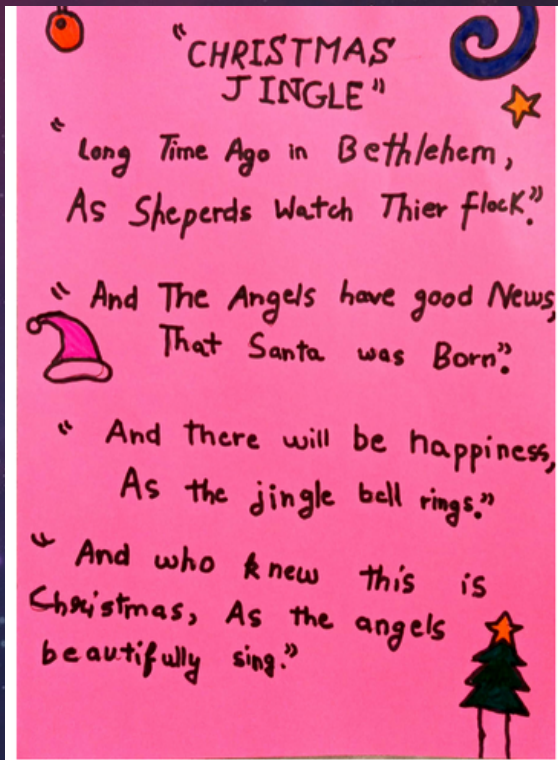 "CHRISTMAS
JINGLE"
"Long Time Ago in Bethlehem,
As Sheperds Watch Thier flock."
"And The Angels have good News,
That Santa was Born".
"And there will be happiness,
As the jingle bell rings."
"And who knew this is
Christmas, As the angels
beautifully sing."